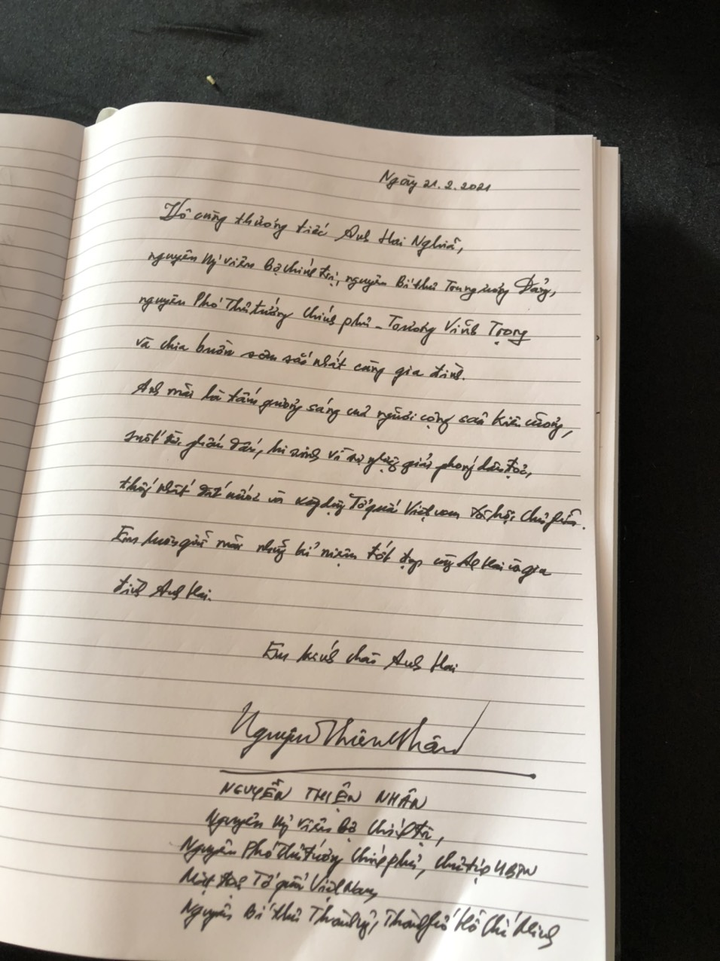 Ngày 21.2.2021
Vô cùng thương tiếc Anh Hai Nghĩa,
nguyên Uỷ viên Bộ chính trị, nguyên Bí thư Trung ương Đảng,
nguyên Phó Thủ tướng Chính phủ - Trương Vĩnh Trọng
và chia buồn sâu sắc nhất cùng gia đình.
Anh mãi là tấm gương sáng của người cộng sản kiên cường,
suốt đời phấn đấu, hi sinh vì sự nghiệp giải phóng dân tộc,
thống nhất đất nước và xây dựng Tổ quốc Việt nam xã hội chủ nghĩa.
Em luôn giữ mãi những kỉ niệm tốt đẹp cùng Anh Hai và gia
đình Anh Hai.
Em kính chào Anh Hai
Nguyễn Thiện Nhân
NGUYỄN THIỆN NHÂN
Nguyên Uỷ viên Bộ Chính trị,
Nguyên Phó Thủ tướng Chính phủ, Chủ tịch UBTW
Mặt trận Tổ quốc Việt Nam,
Nguyên Bí thư Thành uỷ, Thành phố Hồ Chí Minh